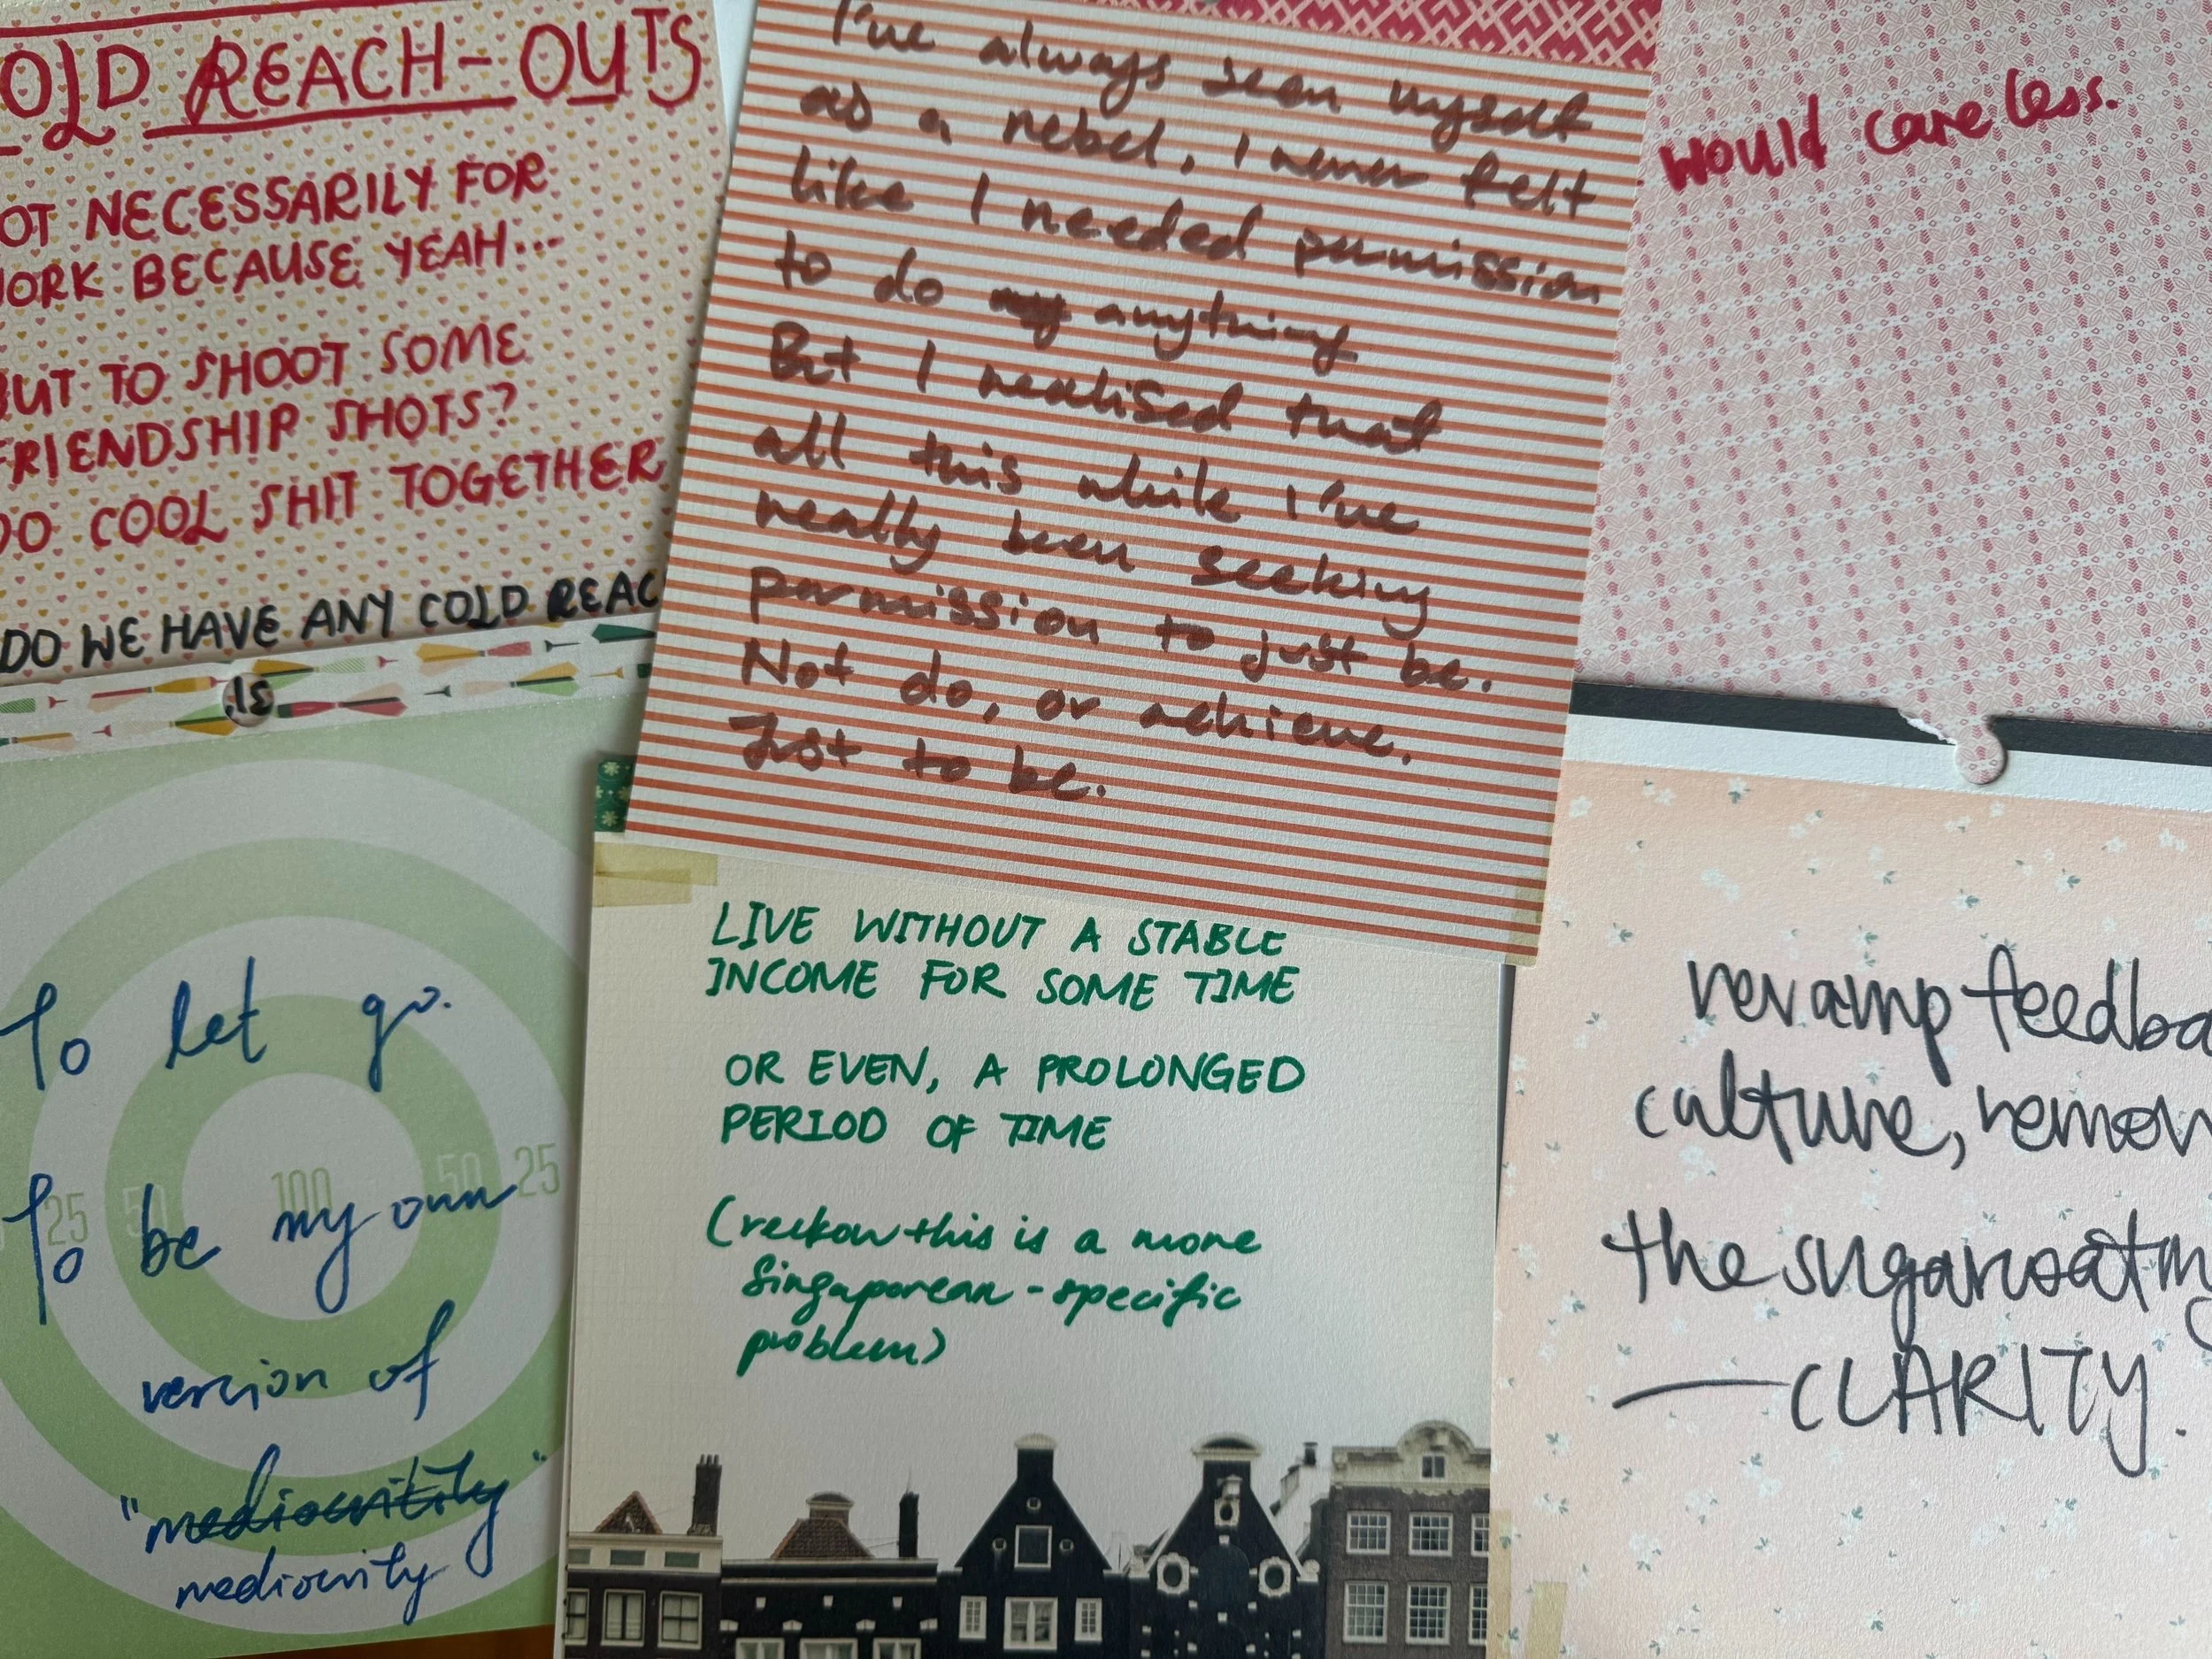 OLD REACH-OUTS
OT NECESSARILY FOR
WORK BECAUSE YEAH...
BUT TO SHOOT SOME
FRIENDSHIP SHOTS?
DO COOL SHIT TOGETHER
DO WE HAVE ANY COLD REAC
I've always seen myself
as a rebel, I never felt
like I needed permission
to do anything
But I realised that
all this while I've
really been seeking
permission to just be.
Not do, or achieve.
Just to be.
would care less.
To let go.
To be my own
version of
"mediocritity"
mediocrity
25 50 100 50 25
LIVE WITHOUT A STABLE
INCOME FOR SOME TIME
OR EVEN, A PROLONGED
PERIOD OF TIME
(reckon this is a more
Singaporean-specific
problem)
revamp feedba
culture, remov
the sugarcoating
— CLARITY.